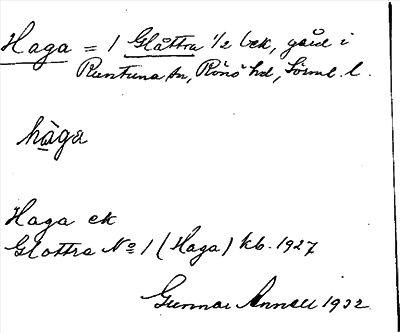 Haga = 1 Glåttra 1/2 bek, gård i
Runtuna sn, Rönö hd, Sörml. l.
hàga
Haga ek
Glottra No 1 (Haga) kb. 1927
Gunnar Annell 1932